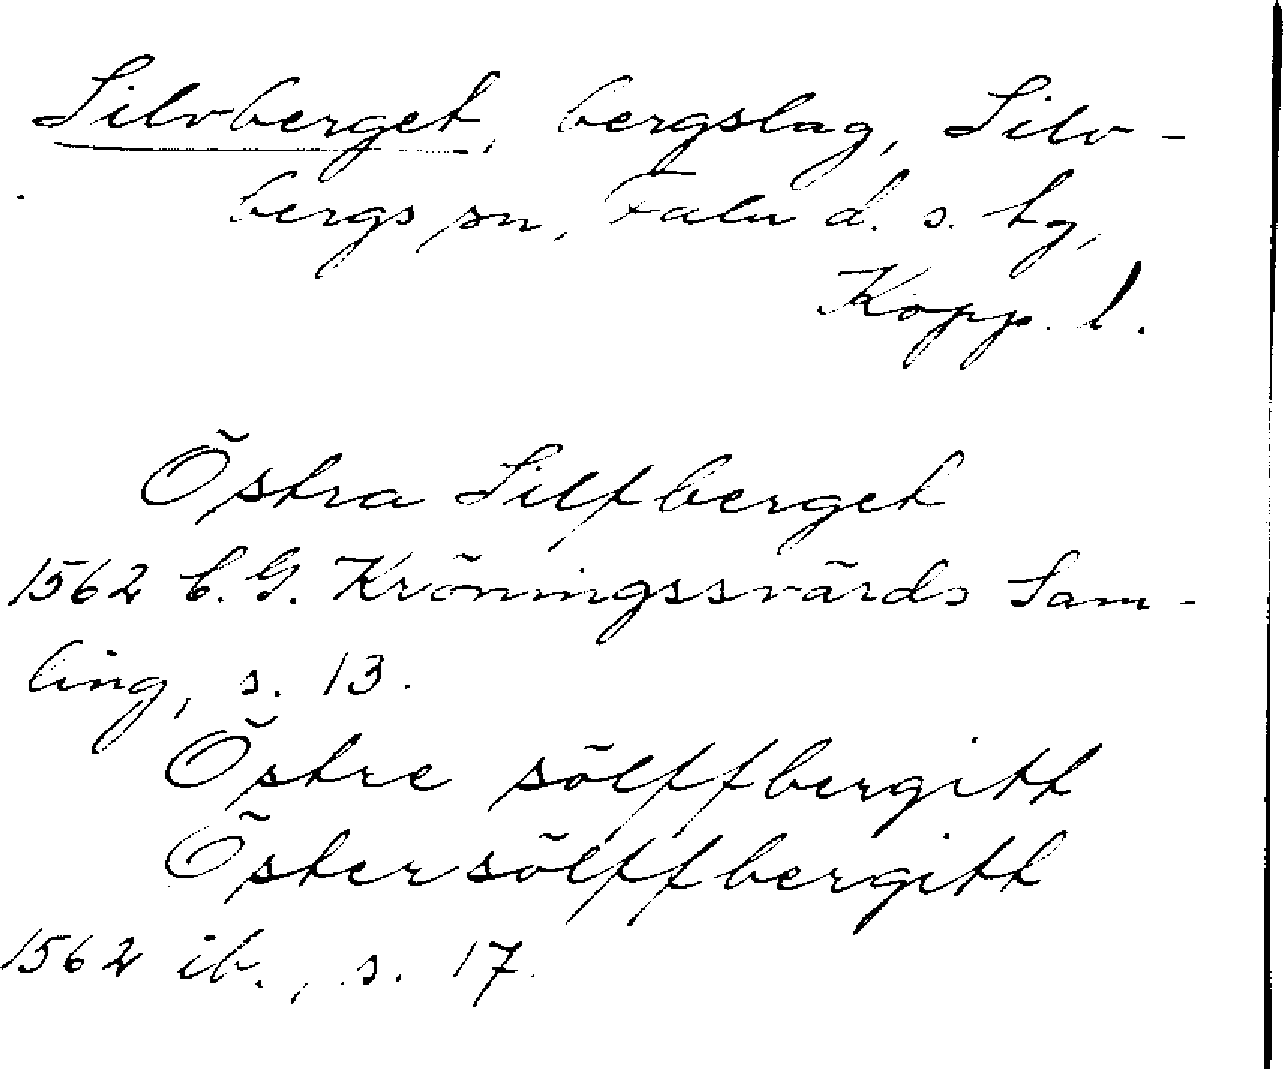 Silvberget, bergslag, Silv-
bergs sn, Falu d. s. hg,
Kopp. l.
Östra Silfberget
1562 C. G. Kröningssvärds Sam-
ling, s. 13.
Östre sölffbergitt
Östersölffbergitt
1562 ib., s. 17.